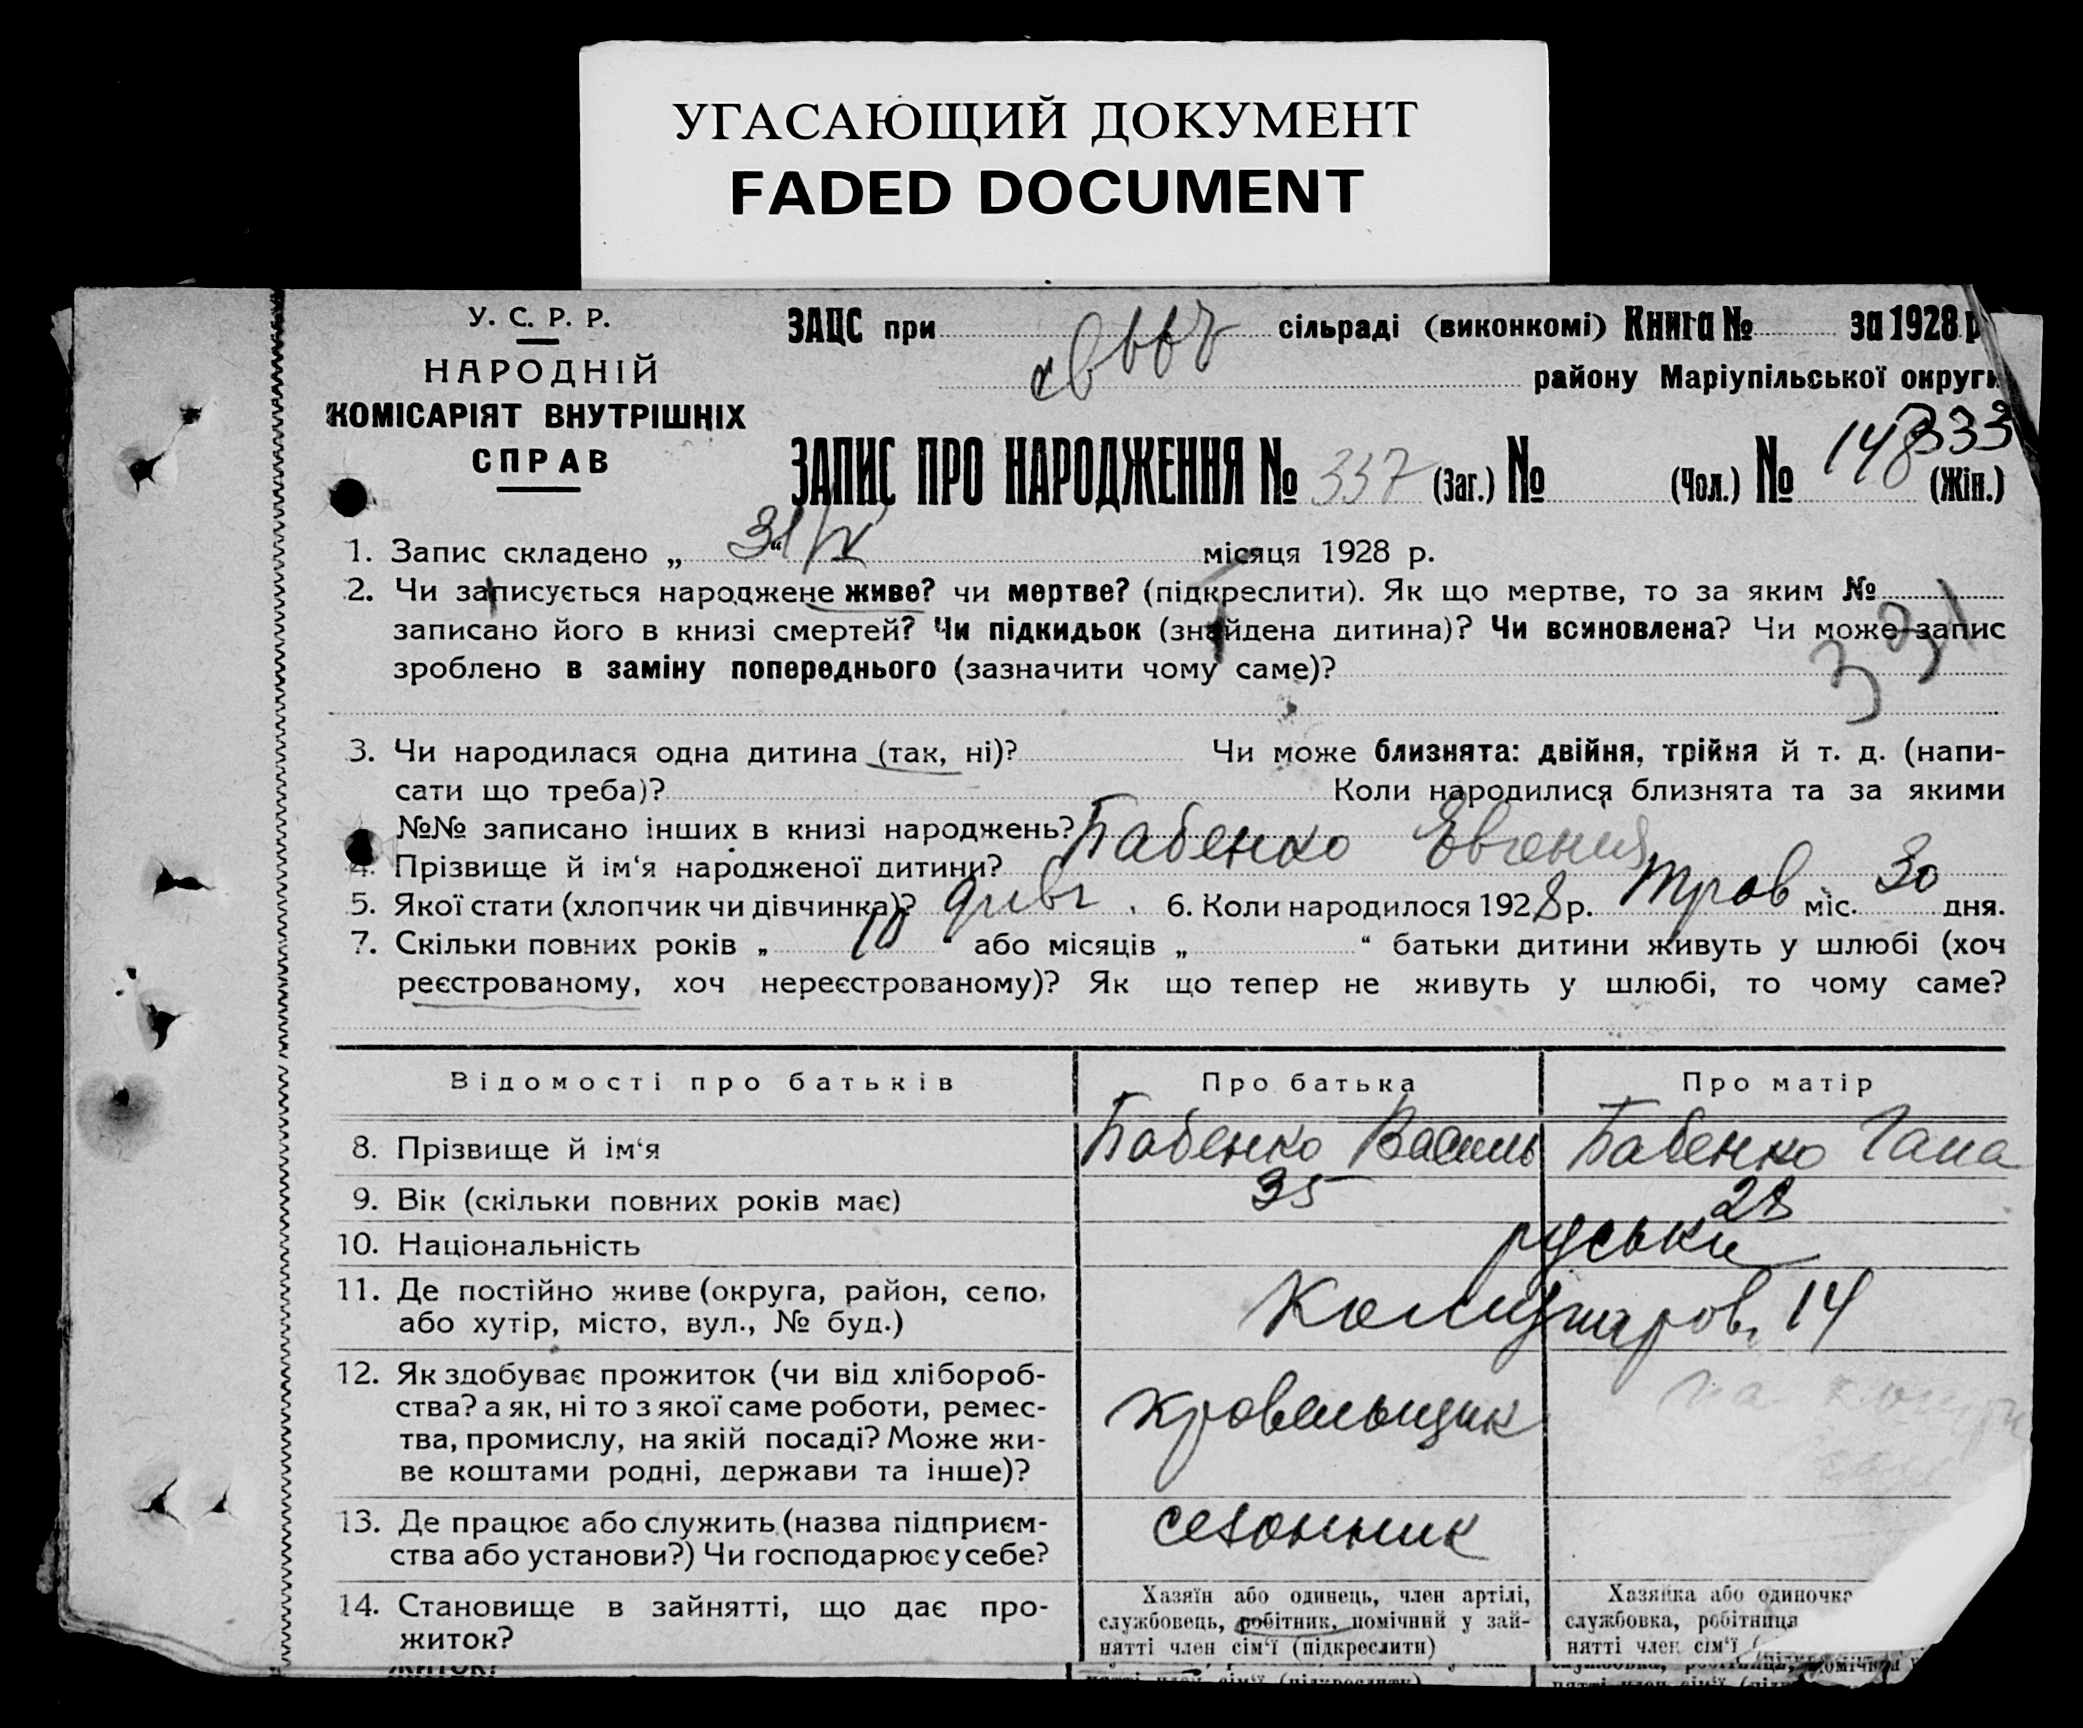 УГАСАЮЩИЙ ДОКУМЕНТ
FADED DOCUMENT
У. С. Р. Р.
НАРОДНІЙ
КОМІСАРІЯТ ВНУТРІШНІХ
СПРАВ
ЗАЦС при сільраді (виконкомі) Книга № за 1928 р
району Маріупільської округи
333
ЗАПИС ПРО НАРОДЖЕННЯ № 337 (Заг.) № (Чол.) № 148 (Жін.)
1. Запис складено „ 31/V “ місяця 1928 р.
2. Чи записується народжене живе? чи мертве? (підкреслити). Як що мертве, то за яким №
записано його в книзі смертей? Чи підкидьок (знайдена дитина)? Чи всиновлена? Чи може запис
зроблено в заміну попереднього (зазначити чому саме)?
331
3. Чи народилася одна дитина (так, ні)? Чи може близнята: двійня, трійня й т. д. (напи-
сати що треба)? Коли народилися близнята та за якими
№№ записано інших в книзі народжень?
4. Прізвище й ім‘я народженої дитини? Бабенко Евгения
5. Якої стати (хлопчик чи дівчинка)? дивч. 6. Коли народилося 1928 р. Трав міс. 30 дня.
7. Скільки повних років „ 10 “ або місяців „ “ батьки дитини живуть у шлюбі (хоч
реєстрованому, хоч нереєстрованому)? Як що тепер не живуть у шлюбі, то чому саме?
Відомості про батьків Про батька Про матір
8. Прізвище й ім‘я Бабенко Василь Бабенко Гана
9. Вік (скільки повних років має) 35 28
10. Національність руськи
11. Де постійно живе (округа, район, село,
або хутір, місто, вул., № буд.) 14
12. Як здобуває прожиток (чи від хлібороб-
ства? а як, ні то з якої саме роботи, ремес-
тва, промислу, на якій посаді? Може жи-
ве коштами родні, держави та інше)? кровельщик
13. Де працює або служить (назва підприєм-
ства або установи?) Чи господарює у себе? сезонник
14. Становище в зайнятті, що дає про-
житок?
Хазяїн або одинець, член артілі,
службовець, робітник, помічний у зай-
нятті член сім‘ї (підкреслити)
Хазяйка або одиночка
службовка, робітниця
нятті член сім‘ї